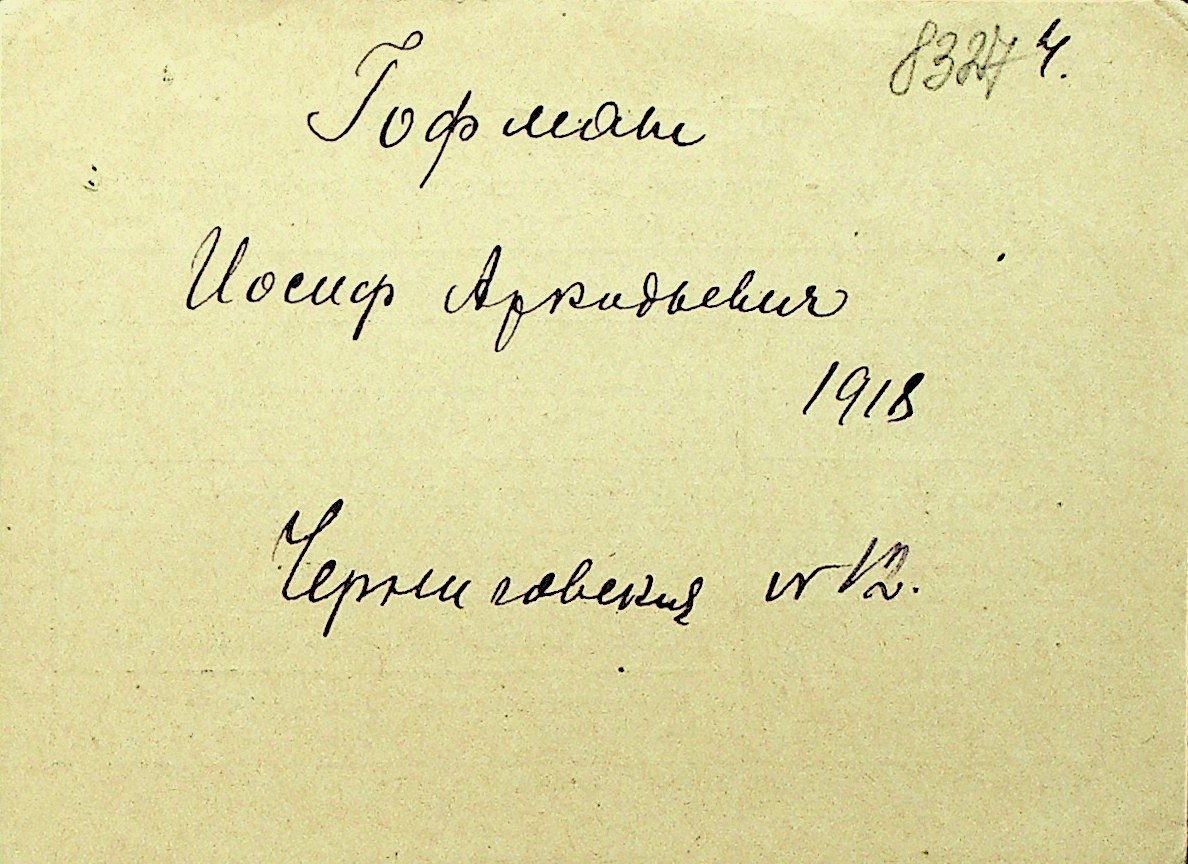 8327 Ч.
Гофман
Иосиф Аркадьевич
1918
Черниговская № 12.